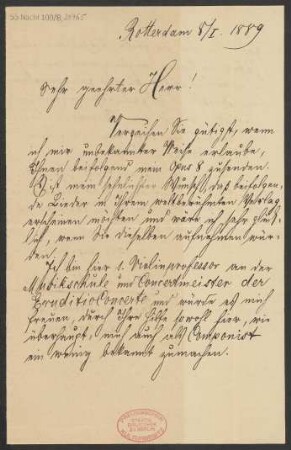 Rotterdam 8/I. 1889
Sehr geehrter Herr!
Verzeihen Sie gütigst, wenn
ich mir unbekannter Weise erlaube,
Ihnen beifolgend mein Opus 8 zusenden.
Es ist mein sehnlichster Wunsch, daß beifolgen-
de Lieder in ihrem weltberühmten Verlag
erscheinen möchten und wäre ich sehr glück-
lich, wenn Sie dieselben aufnehmen wür-
den.
Ich bin hier 1. Violinprofessor an der
Musikschule und Concertmeister der
Eruditio Concerte und würde es mich
freuen, durch Ihre Hilfe sowohl hier, wie
überhaupt, mich auch als Componist
ein wenig bekannt zumachen.